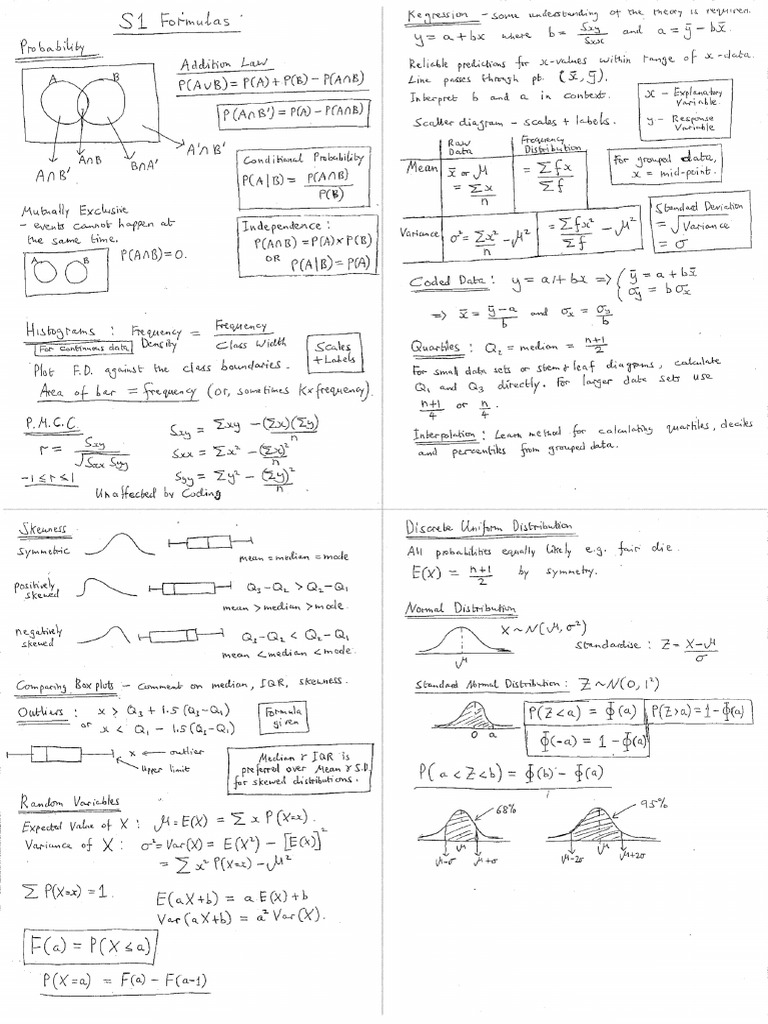 S1 Formulas
Probability
A B
A∩B' A∩B B∩A' A'∩B'
Addition Law
P(A∪B) = P(A) + P(B) − P(A∩B)
P(A∩B') = P(A) − P(A∩B)
Conditional Probability
P(A|B) = P(A∩B) / P(B)
Mutually Exclusive
- events cannot happen at
the same time.
A B P(A∩B) = 0.
Independence:
P(A∩B) = P(A) × P(B)
OR P(A|B) = P(A)
Histograms : Frequency Density = Frequency / Class Width
For continuous data
Scales + Labels
Plot F.D. against the class boundaries.
Area of bar = frequency (or, sometimes K×frequency).
P.M.C.C.
r = Sxy / √(Sxx Syy)
-1 ≤ r ≤ 1
Sxy = Σxy − (Σx)(Σy)/n
Sxx = Σx² − (Σx)²/n
Syy = Σy² − (Σy)²/n
Unaffected by Coding
Regression - some understanding of the theory is required.
y = a + bx where b = Sxy/Sxx and a = ȳ − bx̄.
Reliable predictions for x-values within range of x-data.
Line passes through pt. (x̄, ȳ).
Interpret b and a in context.
Scatter diagram - scales + labels.
x - Explanatory Variable
y - Response Variable
Raw Data Frequency Distribution
Mean x̄ or μ = Σx/n = Σfx/Σf
Variance σ² = Σx²/n − μ² = Σfx²/Σf − μ²
For grouped data,
x = mid-point.
Standard Deviation
= √Variance
= σ
Coded Data : y = a + bx ⇒ { ȳ = a + bx̄
σy = b σx
⇒ x̄ = (ȳ−a)/b and σx = σy/b
Quartiles : Q₂ = median = (n+1)/2
For small data sets or stem & leaf diagrams, calculate
Q₁ and Q₃ directly. For larger data sets use
(n+1)/4 or n/4.
Interpolation : Learn method for calculating quartiles, deciles
and percentiles from grouped data.
Skewness
symmetric
mean = median = mode
positively skewed
Q₃−Q₂ > Q₂−Q₁
mean > median > mode.
negatively skewed
Q₃−Q₂ < Q₂−Q₁
mean < median < mode.
Comparing Box plots - comment on median, IQR, skewness.
Outliers : x > Q₃ + 1.5(Q₃−Q₁)
or x < Q₁ − 1.5(Q₃−Q₁)
Formula given
x ← outlier
Upper limit
Median & IQR is
preferred over Mean & S.D.
for skewed distributions.
Random Variables
Expected Value of X : μ = E(X) = Σ x P(X=x).
Variance of X : σ² = Var(X) = E(X²) − [E(X)]²
= Σ x² P(X=x) − μ²
Σ P(X=x) = 1.
E(aX+b) = a E(X) + b
Var(aX+b) = a² Var(X).
F(a) = P(X ≤ a)
P(X=a) = F(a) − F(a-1)
Discrete Uniform Distribution
All probabilities equally likely e.g. fair die.
E(X) = (n+1)/2 by symmetry.
Normal Distribution
X ~ N(μ, σ²)
μ
standardise : Z = (X−μ)/σ
Standard Normal Distribution : Z ~ N(0, 1²)
0 a
P(Z<a) = Φ(a) P(Z>a) = 1 − Φ(a)
Φ(-a) = 1 − Φ(a)
P(a < Z < b) = Φ(b) − Φ(a)
68% 95%
μ-σ μ μ+σ μ-2σ μ μ+2σ